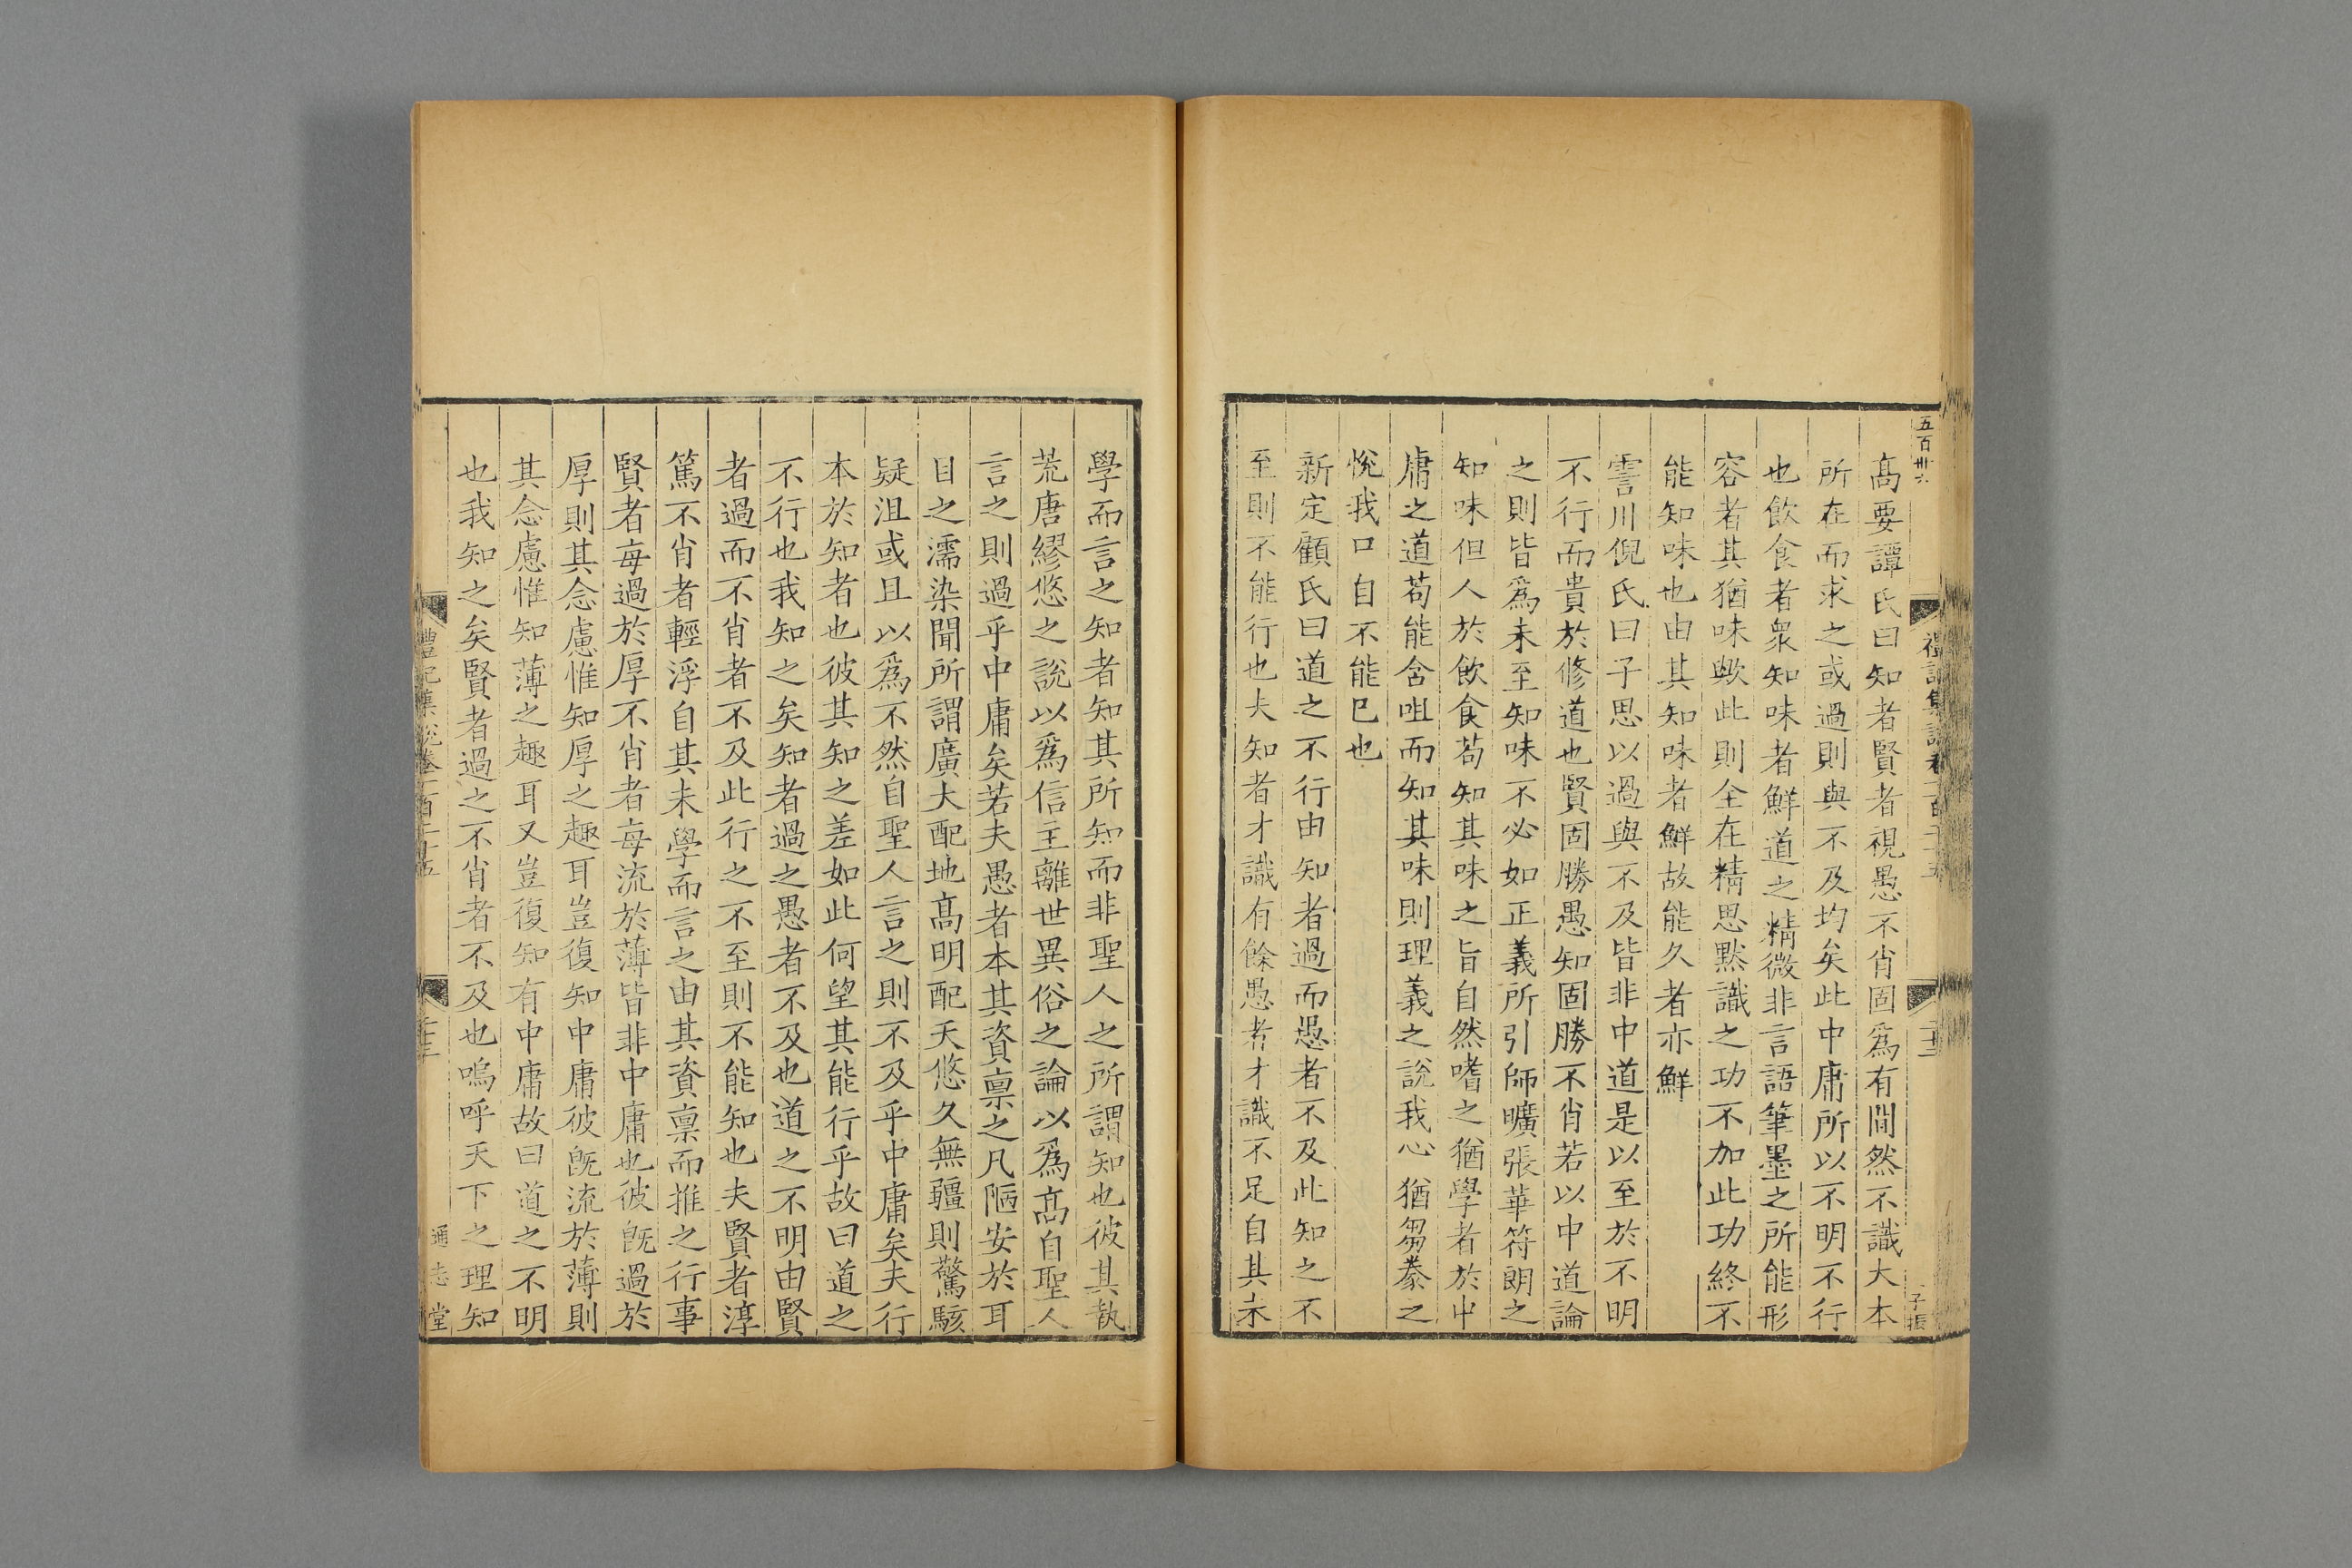 五百卅六
禮記集說卷一百二十五
二十二
子振
高要譚氏曰知者賢者視愚不肖固爲有間然不識大本
所在而求之或過則與不及均矣此中庸所以不明不行
也飲食者衆知味者鮮道之精微非言語筆墨之所能形
容者其猶味歟此則全在精思默識之功不加此功終不
能知味也由其知味者鮮故能久者亦鮮
霅川倪氏曰子思以過與不及皆非中道是以至於不明
不行而貴於修道也賢固勝愚知固勝不肖若以中道論
之則皆爲未至知味不必如正義所引師曠張華符朗之
知味但人於飲食苟知其味之旨自然嗜之猶學者於中
庸之道苟能含咀而知其味則理義之說我心猶芻豢之
悅我口自不能已也
新定顧氏曰道之不行由知者過而愚者不及此知之不
至則不能行也夫知者才識有餘愚者才識不足自其未
學而言之知者知其所知而非聖人之所謂知也彼其執
荒唐繆悠之說以爲信主離世異俗之論以爲高自聖人
言之則過乎中庸矣若夫愚者本其資禀之凡陋安於耳
目之濡染聞所謂廣大配地高明配天悠久無疆則驚駭
疑沮或且以爲不然自聖人言之則不及乎中庸矣夫行
本於知者也彼其知之差如此何望其能行乎故曰道之
不行也我知之矣知者過之愚者不及也道之不明由賢
者過而不肖者不及此行之不至則不能知也夫賢者淳
篤不肖者輕浮自其未學而言之由其資禀而推之行事
賢者每過於厚不肖者每流於薄皆非中庸也彼旣過於
厚則其念慮惟知厚之趣耳豈復知中庸彼旣流於薄則
其念慮惟知薄之趣耳又豈復知有中庸故曰道之不明
也我知之矣賢者過之不肖者不及也嗚呼天下之理知
禮記集說卷一百二十五
通志堂